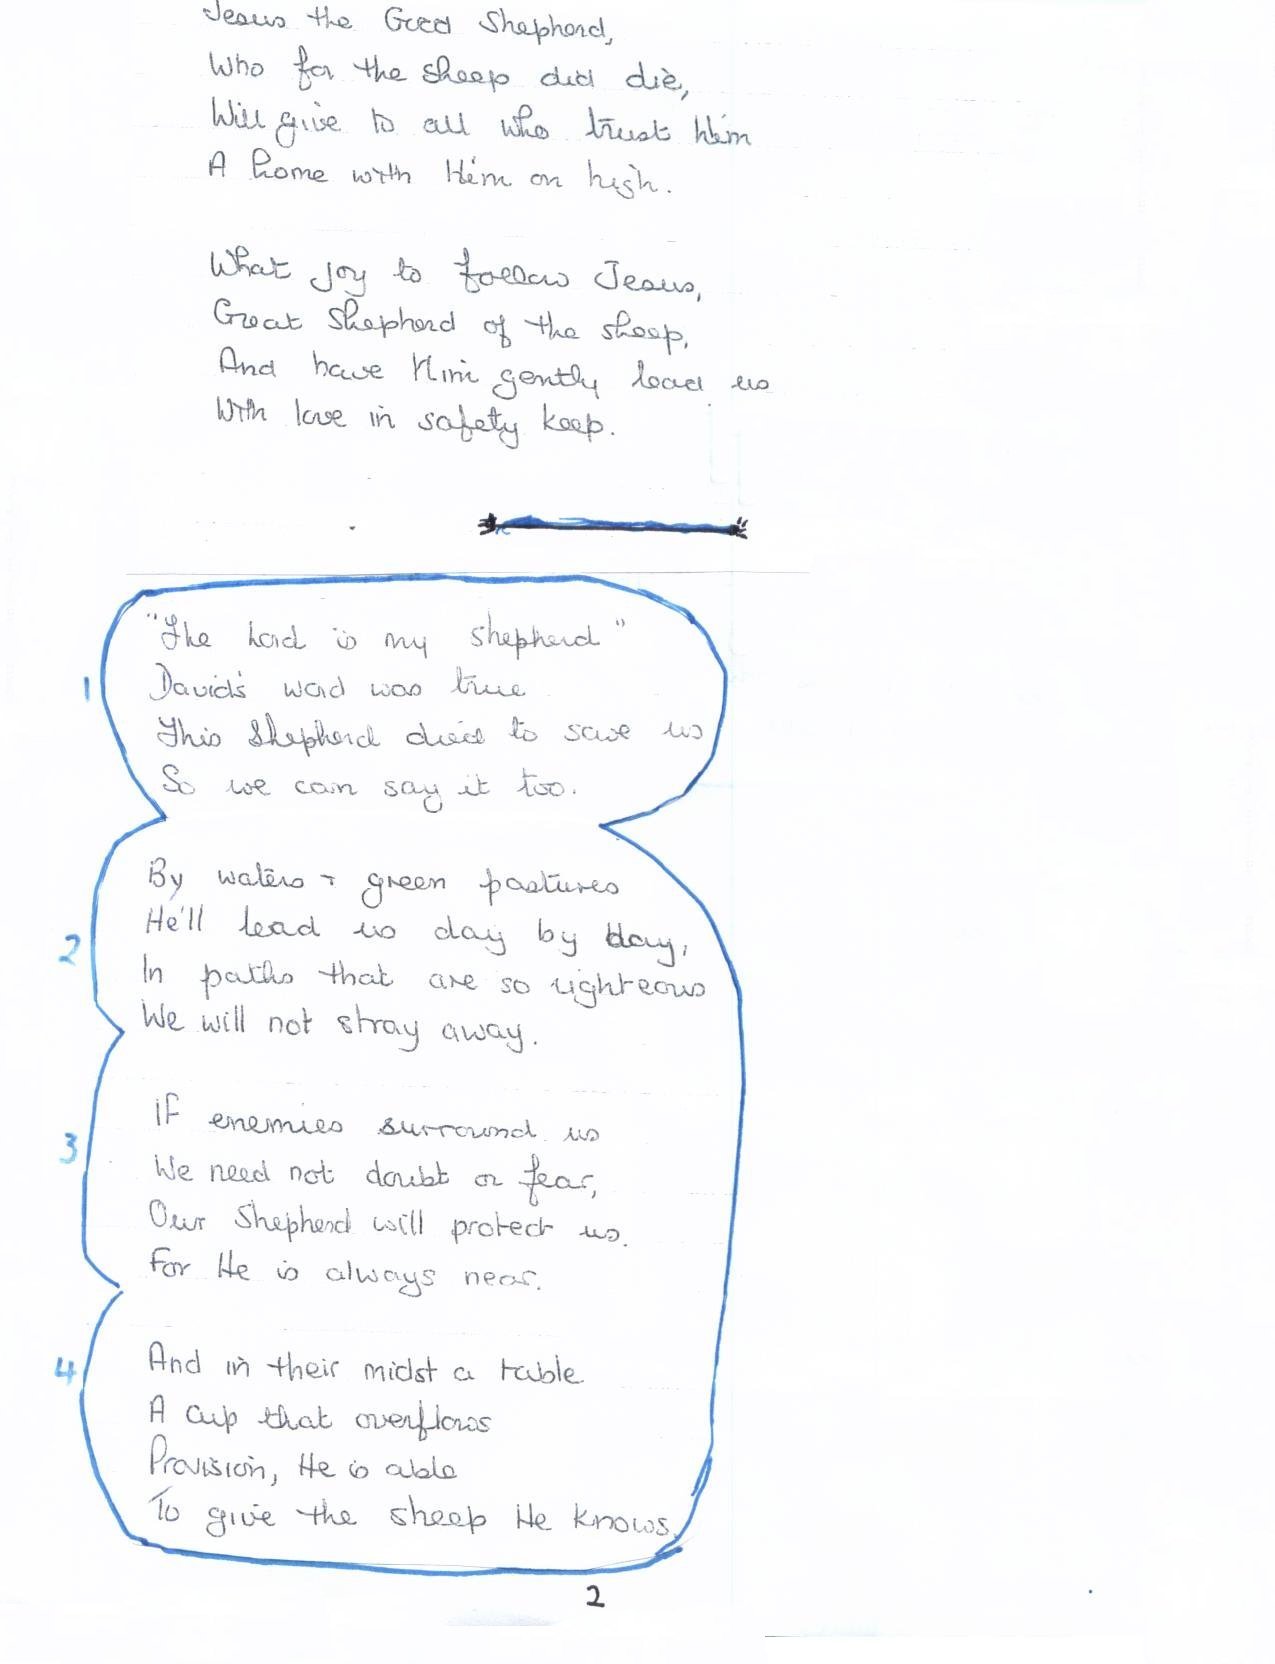 Jesus the Good Shepherd,
Who for the sheep did die,
Will give to all who trust Him
A home with Him on high.
What joy to follow Jesus,
Great Shepherd of the sheep,
And have Him gently lead us
With love in safety keep.
"The Lord is my shepherd"
David's word was true
1
This Shepherd died to save us
So we can say it too.
By waters + green pastures
He'll lead us day by day,
2
In paths that are so righteous
We will not stray away.
If enemies surround us
3
We need not doubt or fear,
Our Shepherd will protect us.
For He is always near.
And in their midst a table
4
A cup that overflows
Provision, He is able
To give the sheep He knows.
2